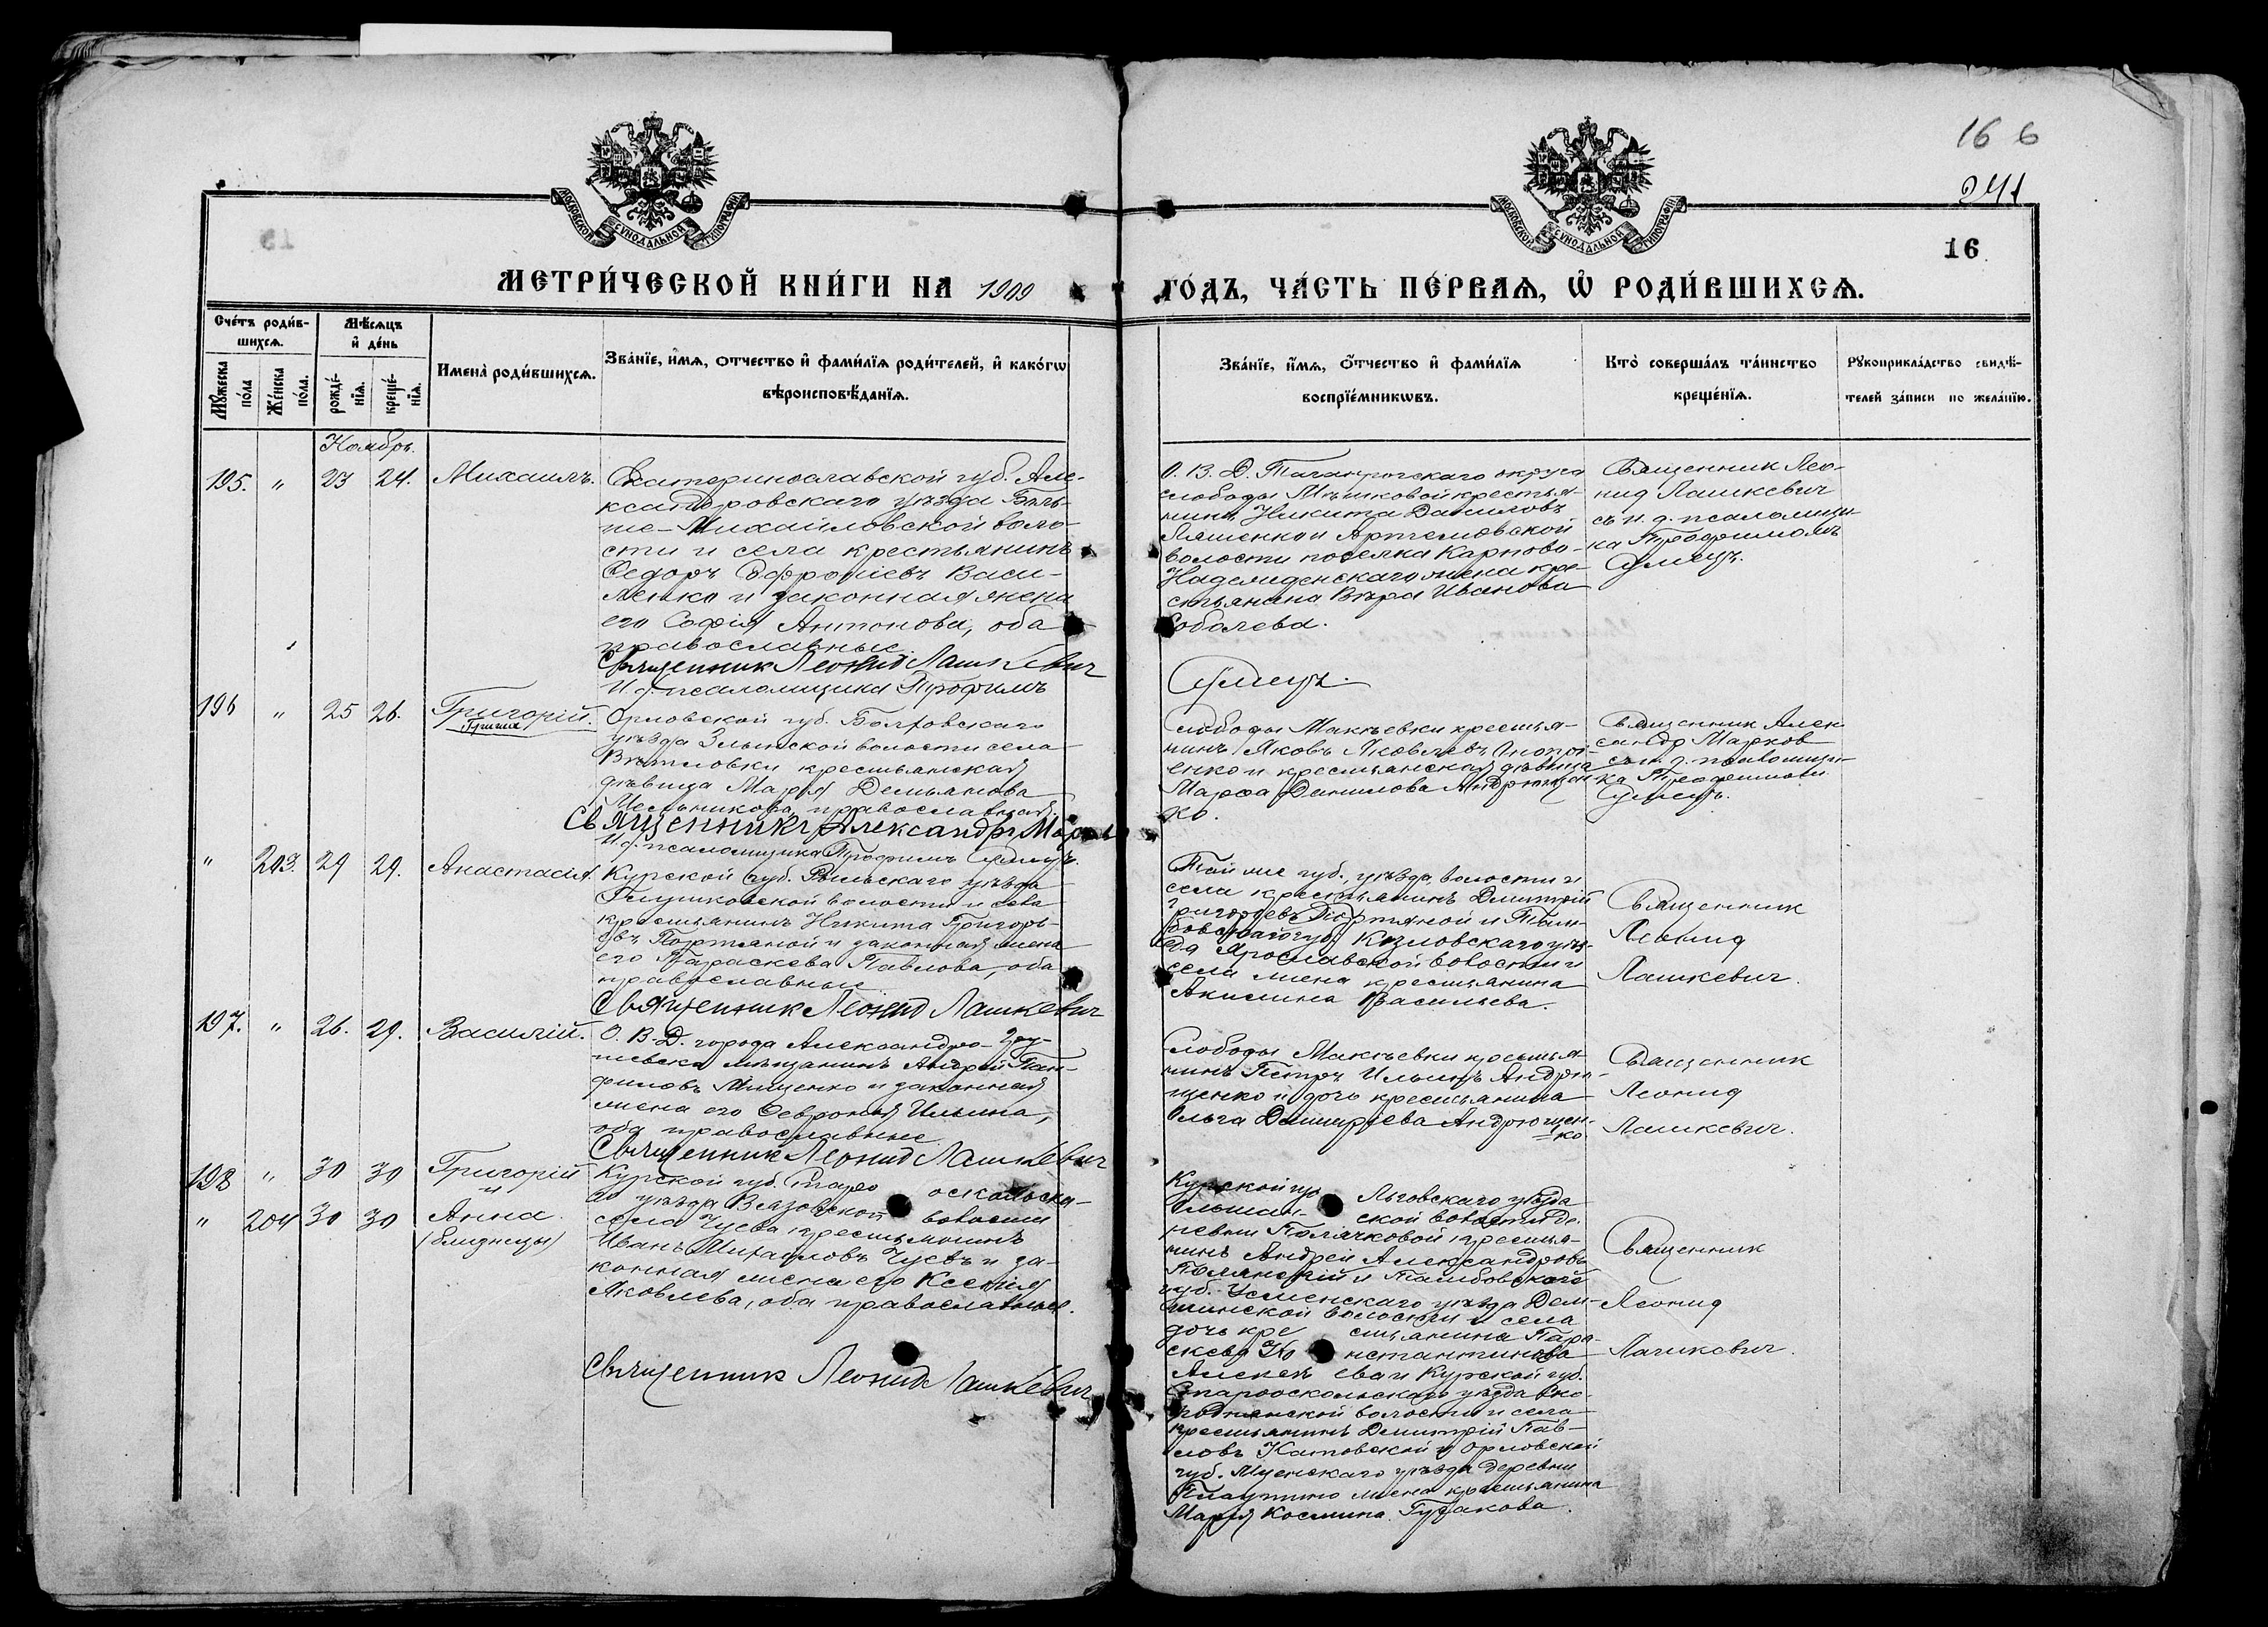 16 6
241
МОСКОВСКОЙ СѴНОДАЛЬНОЙ ТИПОГРАФІИ
МОСКОВСКОЙ СѴНОДАЛЬНОЙ ТИПОГРАФІИ
16
МЕТРИ́ЧЕСКОЙ КНИ́ГИ НА 1909
ГО́ДЪ, ЧА́СТЬ ПЕ́РВАѦ, Ѡ҆ РОДИ́ВШИХСѦ.
Сче́тъ роди́в-
шихсѧ.
Мѣ́сѧцъ
и҆ де́нь
Мꙋжеска по́ла
Же́нска по́ла.
рожде́-
нїѧ.
креще́-
нїѧ.
Имена̀ роди́вшихсѧ.
Зва́нїе, и҆́мѧ, о҆тчество и҆ фами́лїѧ роди́телей, и҆ како́гѡ
вѣроисповѣ́данїѧ.
Зва́нїе, и҆́мѧ, о҆́тчество и҆ фами́лїѧ
воспрїе́мникѡвъ.
Кто̀ соверша́лъ та́инство
креще́нїѧ.
Рꙋкоприкла́дство свидѣ́-
телей за́писи по жела́нїю.
Ноябрь.
195. " 23 24. Михаилъ.
Екатеринославской губ. Але-
ксандровскаго уѣзда Бѣль-
ше-Михайловской воло-
сти и села крестьянинъ
Ѳедоръ Евфроніевъ Васи-
ленко и законная жена
его Софія Антонова, оба
православные.
Священник Леонид Лашкевич
И. д. псаломщика Трофимъ
О. В. Д. Таганрогскаго округа
слободы Мѣшковой крестья-
нинъ Никита Даниловъ
Ляшенко и Артемовской
волости поселка Карпово-
Надежденскаго жена кре-
стьянина Вѣра Иванова
Соболева.
Сулецъ.
Священник Лео-
нид Лашкевич
съ и. д. псаломщи-
ка Трофимомъ
Сулецъ.
196 " 25 26. Григорій.
Орловской губ. Болховскаго
уѣзда Злынской волости села
Вѣтловки крестьянская
дѣвица Марія Демьянова
Мельникова, православная.
Священникъ Александръ Марков
И. д. псаломщика Трофимъ Сулецъ.
Слободы Макѣевки крестья-
нинъ Яковъ Яковлевъ
енко и крестьянская дѣвица
Марѳа Данилова Андрющен
ко.
Священник Алек
сандр Марков
съ и. д. псаломщи-
ка Трофимомъ
Сулецъ.
" 203. 29 29. Анастасія.
Курской губ. Рыльскаго уѣзда
Глушковской волости и села
крестьянинъ Никита Григорь-
евъ Портяной и законная жена
его Параскева Павлова, оба
православные
Священник Леонид Лашкевич
Той же губ., уѣзда, волости и
села крестьянинъ Дмитрій
Григорьевъ Портяной и Там-
бовской губ. Козловскаго уѣз-
да Ярославской волости и
села жена крестьянина
Акилина Васильева.
Священник
Леонид
Лашкевич.
197. " 26. 29. Василій.
О. В. Д. города Александро-Гру-
шевска мѣщанинъ Андрей Пан-
филовъ Мищенко и законная
жена его Ѳеврония Ильина,
оба православные
Священник Леонид Лашкевич
Слободы Макѣевки крестья-
нинъ Петръ Ильинъ Андрю-
щенко и дочь крестьянина
Ольга Димитріева Андрющен-
ко.
Священник
Леонид
Лашкевич.
198 " 30 30 Григорій
и
" 204 30 30 Анна
(близнецы)
Курской губ. Старо оскольска-
го уѣзда Вязовской волости
села Чуева крестьянинъ
Иванъ Михаиловъ Чуевъ и за-
конная жена его Ксенія
Яковлева, оба православные.
Священник Леонид Лашкевич
Курской гу Льговскаго уѣзда
ской волости де-
ревни крестья-
нинъ Андрей Александровъ
Полянскій и Тамбовской
губ. Усменскаго уѣзда Дем-
шинской волости и села
дочь кре стьянина Пара-
скева Ко нстантинова
Алекѣ ева и Курской губ.
Старооскольскаго уѣзда Ско-
роднянской волости и села
крестьянинъ Димитрій Пав-
ловъ Катовской и Орловской
губ. Мценскаго уѣзда деревни
Плаутино жена крестьянина
Марія Космина Гусакова.
Священник
Леонид
Лашкевич.